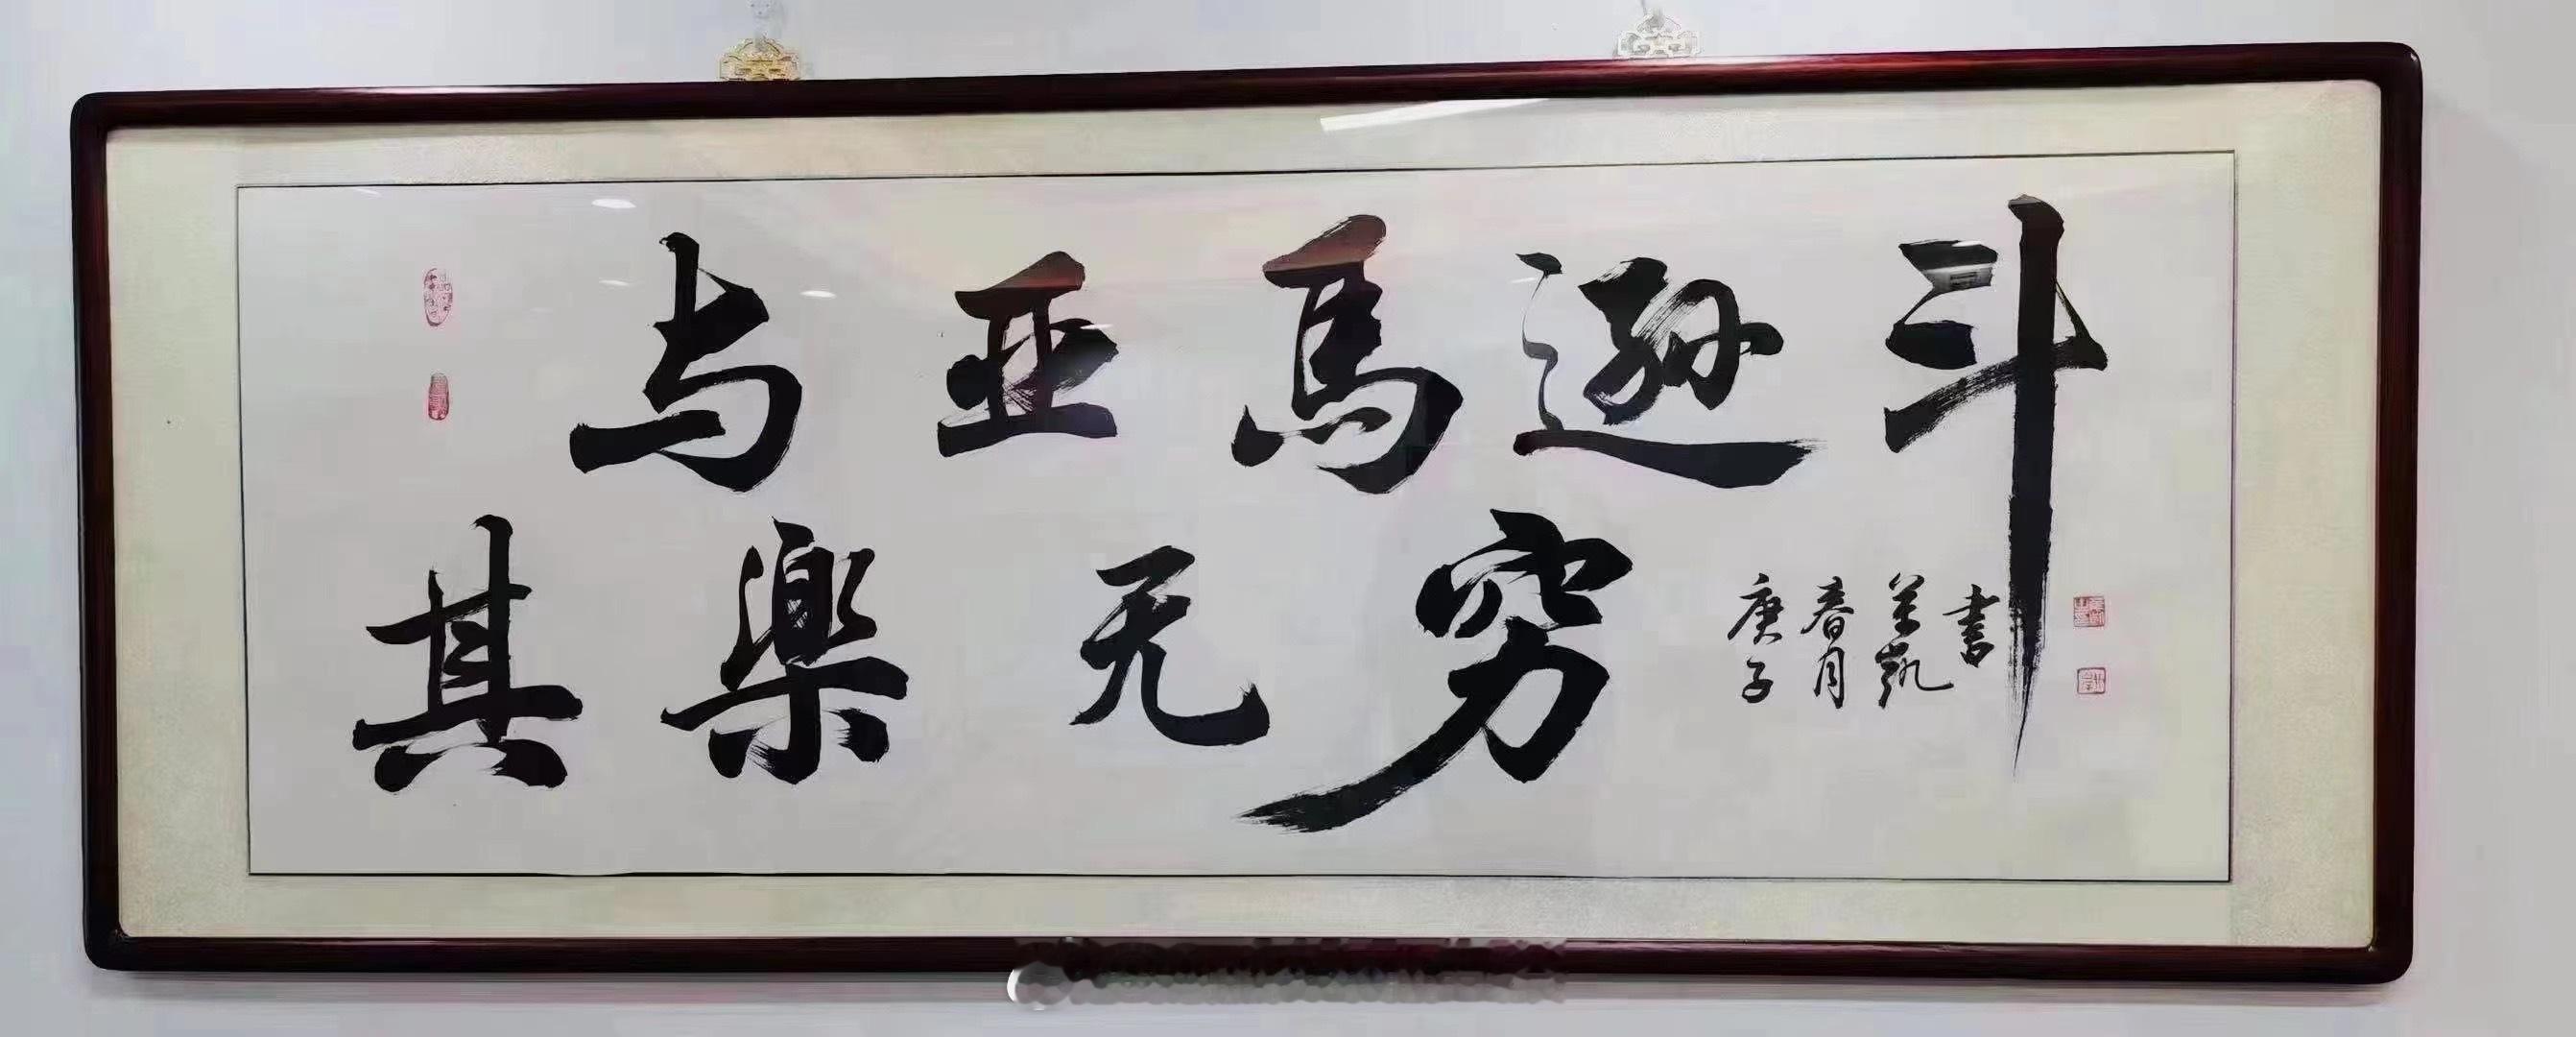 与亚馬逊斗
其樂无穷
庚子
春月
凯
書